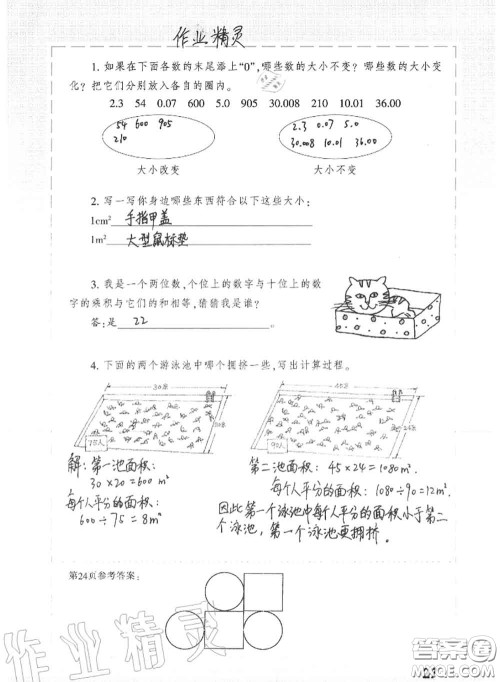 作业精灵
1. 如果在下面各数的末尾添上“0”,哪些数的大小不变？哪些数的大小变
化？把它们分别放入各自的圈内。
2.3 54 0.07 600 5.0 905 30.008 210 10.01 36.00
54 600 905
210
2.3 0.07 5.0
30.008 10.01 36.00
大小改变 大小不变
2. 写一写你身边哪些东西符合以下这些大小：
1cm² 手指甲盖
1m² 大型鼠标垫
3. 我是一个两位数,个位上的数字与十位上的数
字的乘积与它们的和相等,猜猜我是谁？
答：是 22
4. 下面的两个游泳池中哪个拥挤一些,写出计算过程。
30米
75人
45米
24米
解：第一池面积：
30×20=600m²
每个人平分的面积：
600÷75=8m²
第二池面积：45×24=1080m²
每个人平分的面积：1080÷90=12m²
因此第一个泳池中每个人平分的面积小于第二
个泳池，第一个泳池更拥挤．
第24页参考答案：
作业精灵
答案圈
MXQE.COM